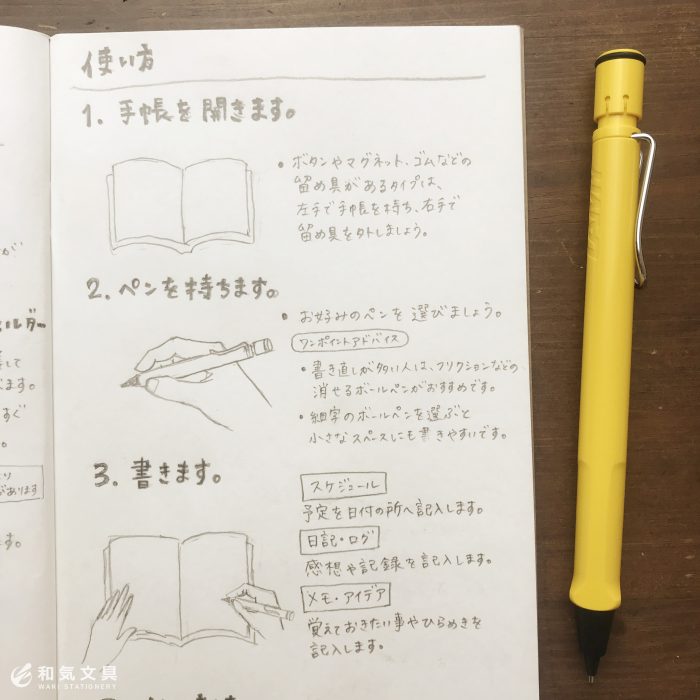 使い方
1. 手帳を開きます。
・ボタンやマグネット、ゴムなどの
留め具があるタイプは、
左手で手帳を持ち、右手で
留め具を外しましょう。
2. ペンを持ちます。
・お好みのペンを選びましょう。
ワンポイントアドバイス
・書き直しが多い人は、フリクションなどの
消せるボールペンがおすすめです。
・細字のボールペンを選ぶと
小さなスペースにも書きやすいです。
3. 書きます。
スケジュール
予定を日付の所へ記入します。
日記・ログ
感想や記録を記入します。
メモ・アイデア
覚えておきたい事やひらめきを
記入します。
が
ルダー
して
ます。
すぐ
。
があります
ます。
和気文具
WAKI STATIONERY